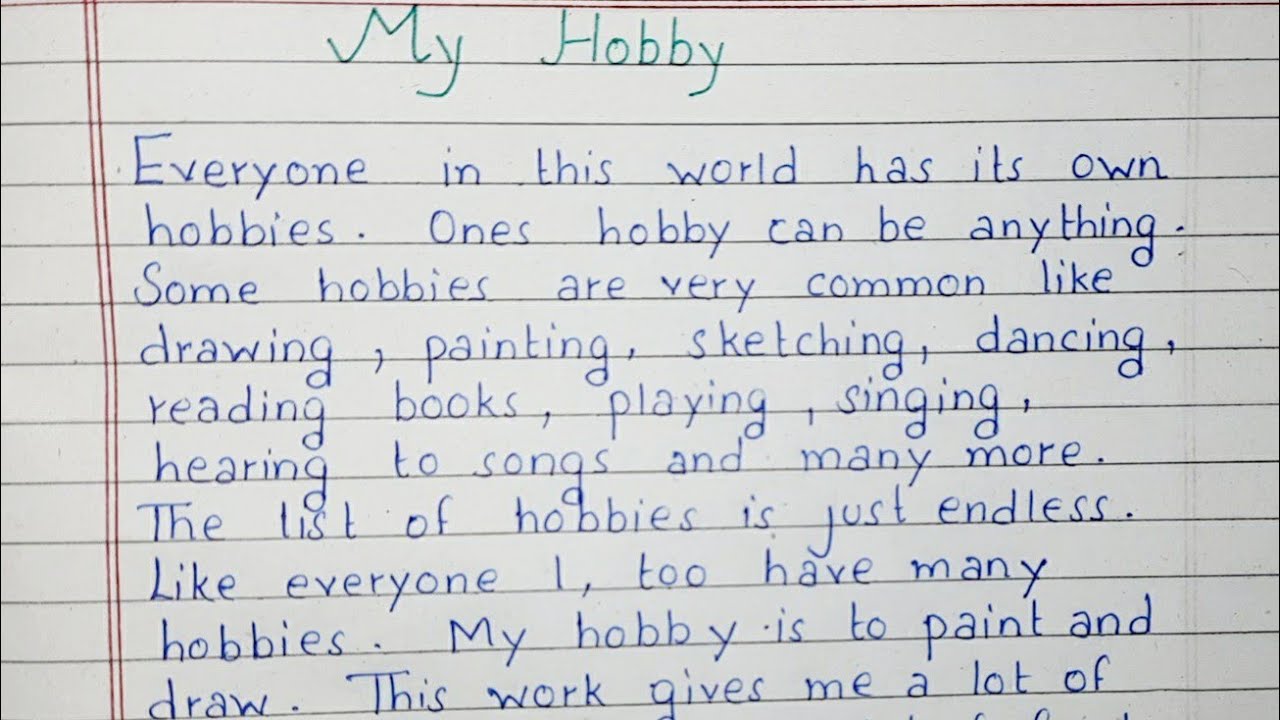 My Hobby
Everyone in this world has its own
hobbies. Ones hobby can be anything.
Some hobbies are very common like
drawing, painting, sketching, dancing,
reading books, playing, singing,
hearing to songs and many more.
The list of hobbies is just endless.
Like everyone I, too have many
hobbies. My hobby is to paint and
draw. This work gives me a lot of